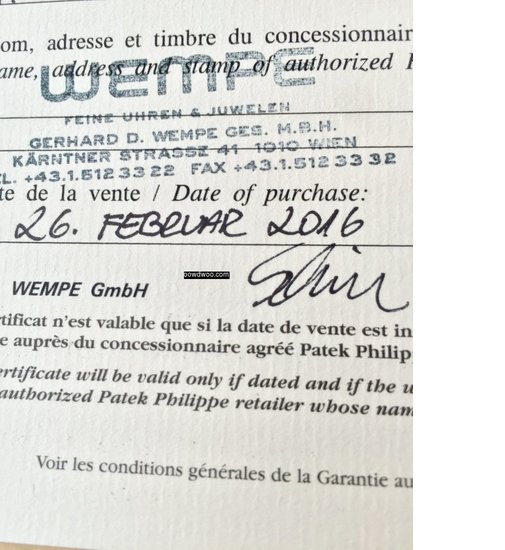 om, adresse et timbre du concessionnair
ame, address and stamp of authorized
WEMPE
FEINE UHREN & JUWELEN
GERHARD D. WEMPE GES. M.B.H.
KÄRNTNER STRASSE 41 1010 WIEN
EL. +43.1.512 33 22 FAX +43.1.512 33 32
te de la vente / Date of purchase:
26. FEBRUAR 2016
powdwoo.com
WEMPE GmbH
tificat n'est valable que si la date de vente est in
e auprès du concessionnaire agréé Patek Philip
ertificate will be valid only if dated and if the w
authorized Patek Philippe retailer whose nam
Voir les conditions générales de la Garantie au